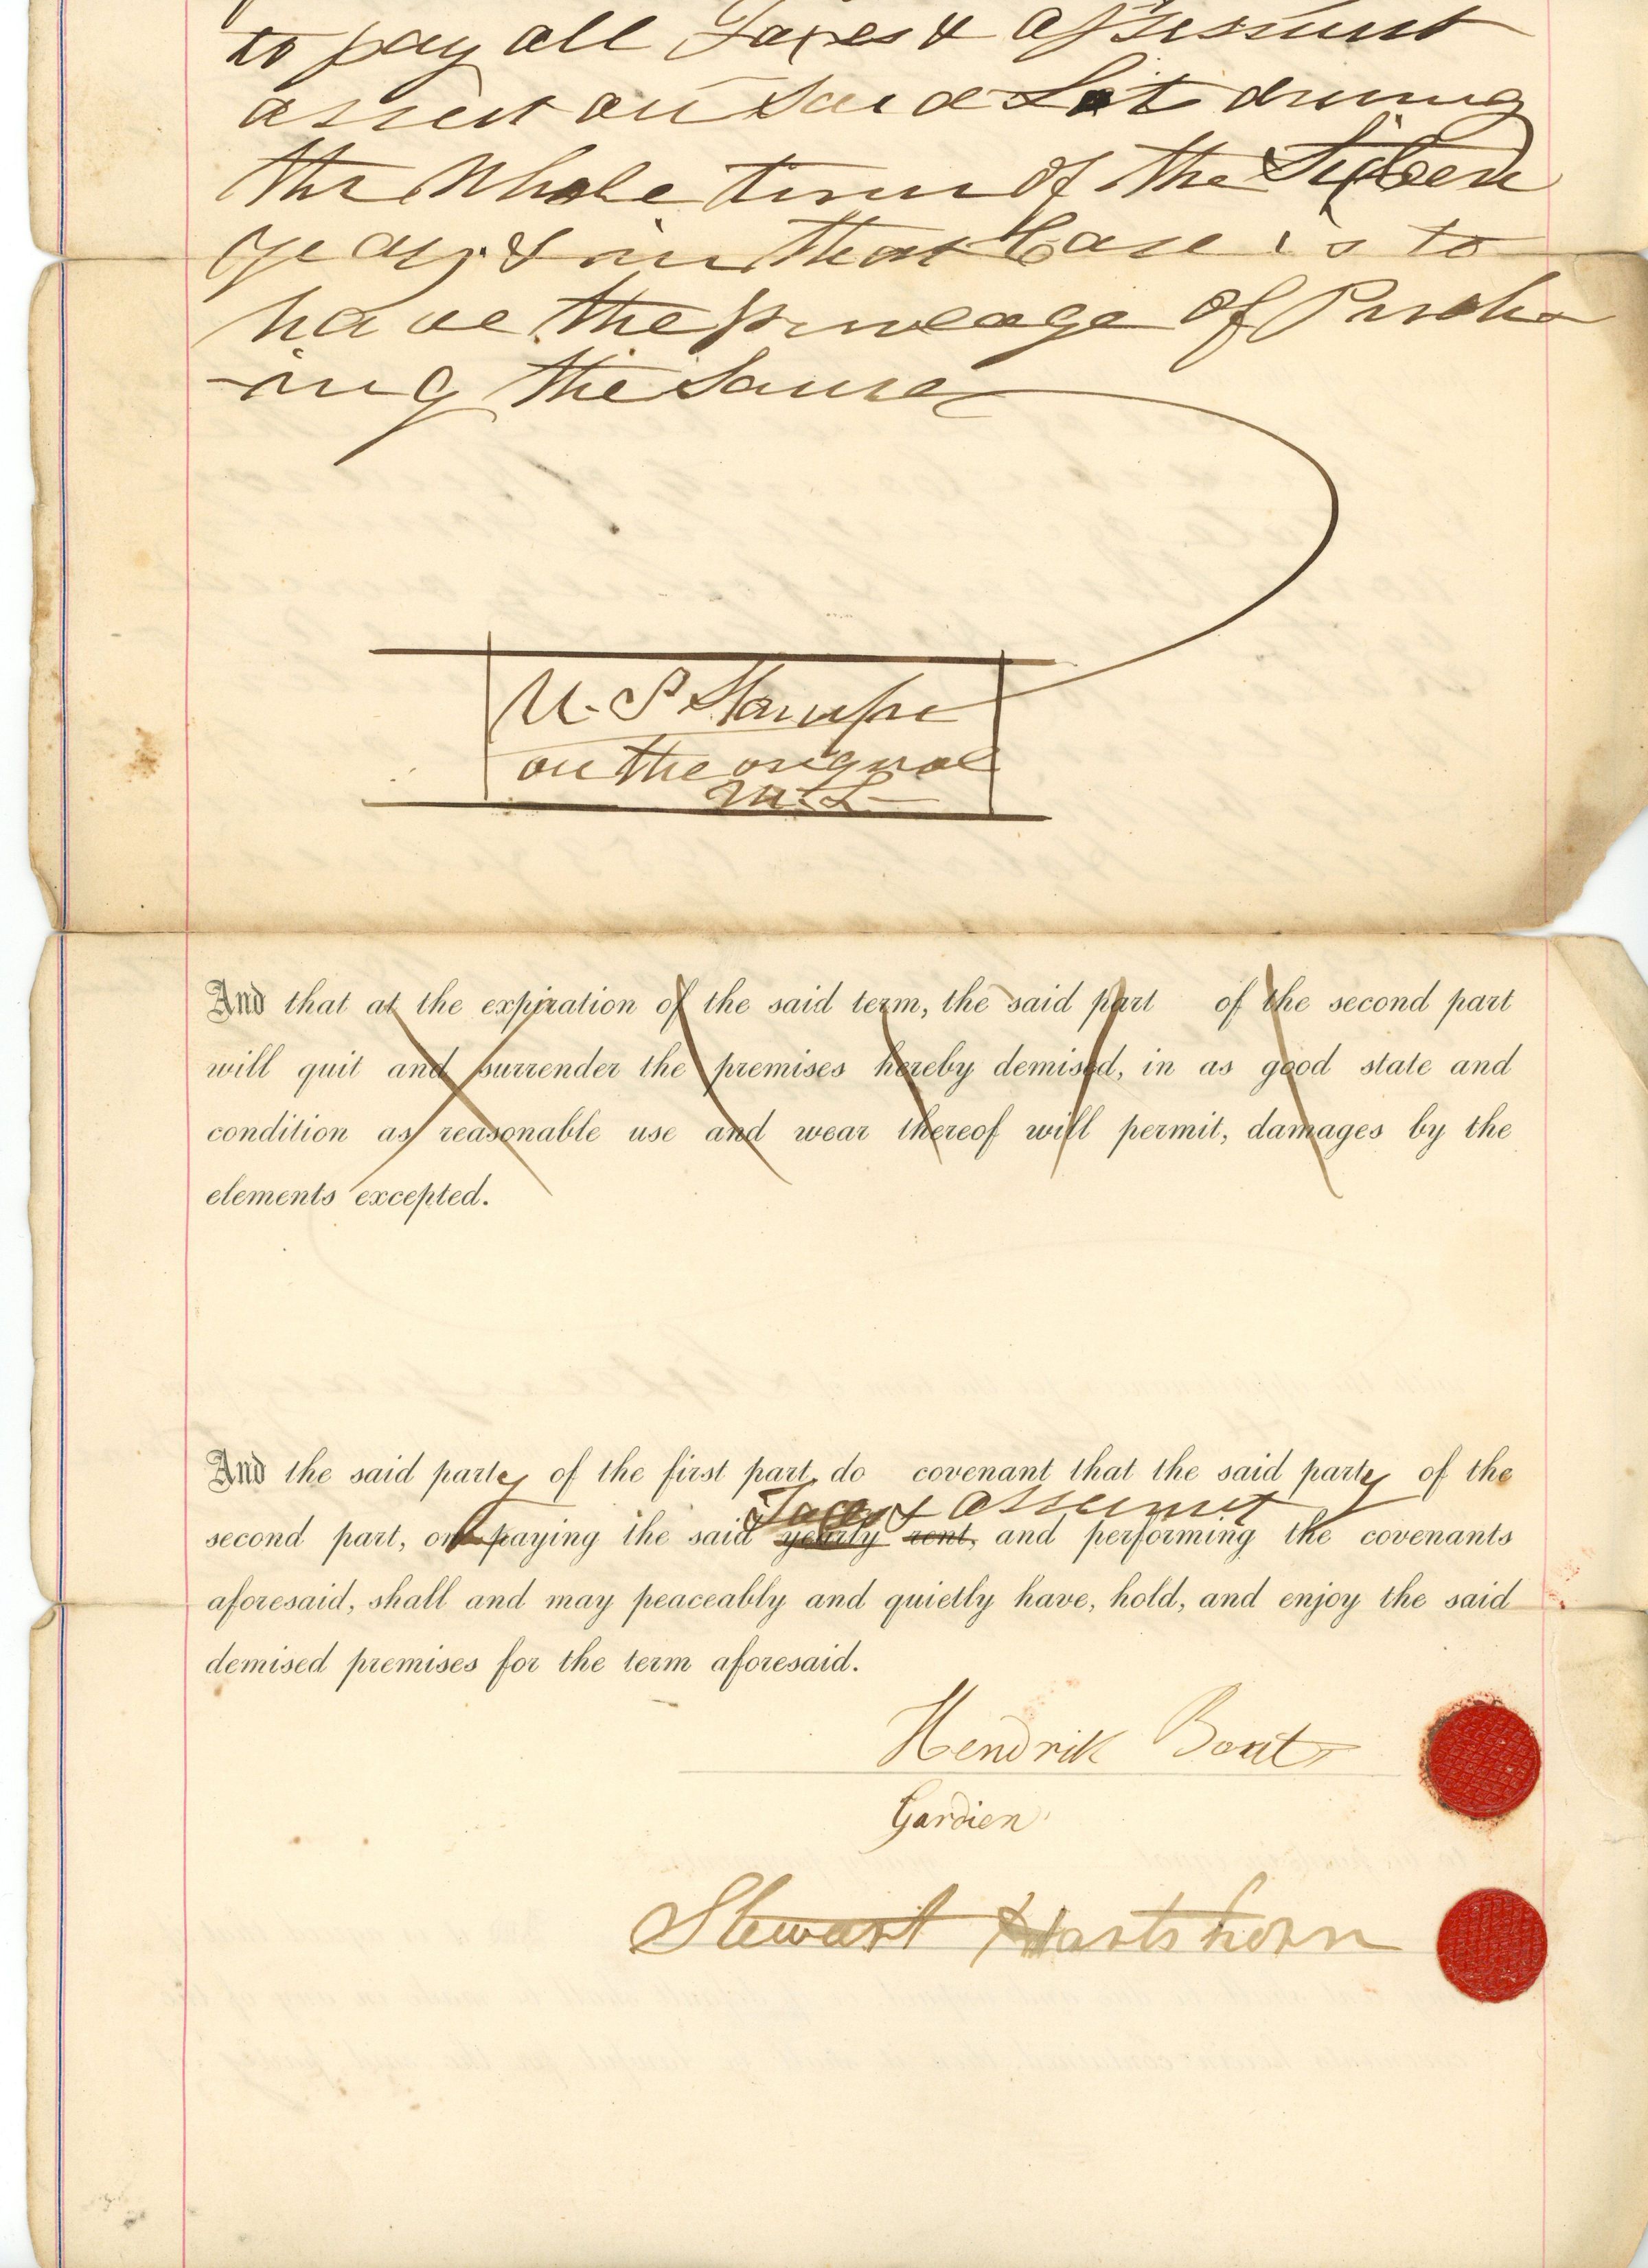 to pay all Taxes & assessment
assest on Said Lot during
the Whole term of the
years & in that Case is to
have the privleage of Purchas
-ing the Same
U. S Stamps
on the original
And that at the expiration of the said term, the said part of the second part
will quit and surrender the premises hereby demised, in as good state and
condition as reasonable use and wear thereof will permit, damages by the
elements excepted.
And the said party of the first part do covenant that the said party of the
Taxes & assesment
second part, on paying the said yearly rent, and performing the covenants
aforesaid, shall and may peaceably and quietly have, hold, and enjoy the said
demised premises for the term aforesaid.
Hendrik Bont
Gardien
Stewart Hartshorn